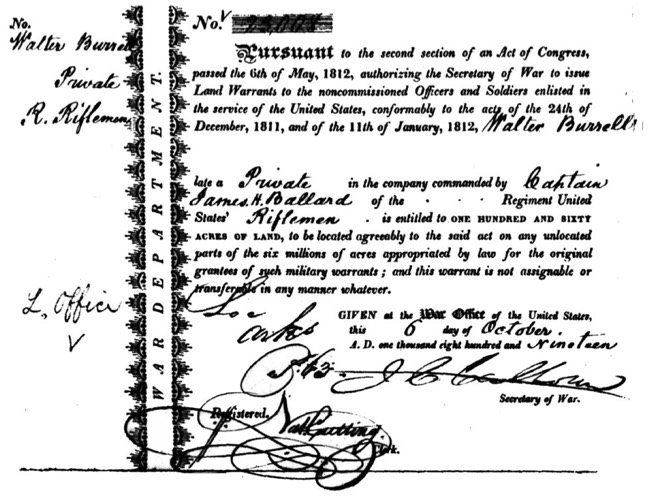 No.
Walter Burrell
Private
R. Riflemen
L. Office
V
WAR DEPARTMENT.
No.
Pursuant to the second section of an Act of Congress,
passed the 6th of May, 1812, authorizing the Secretary of War to issue
Land Warrants to the noncommissioned Officers and Soldiers enlisted in
the service of the United States, conformably to the acts of the 24th of
December, 1811, and of the 11th of January, 1812, Walter Burrell
late a Private in the company commanded by Captain
James H. Ballard of the Regiment United
States' Riflemen is entitled to ONE HUNDRED AND SIXTY
ACRES OF LAND, to be located agreeably to the said act on any unlocated
parts of the six millions of acres appropriated by law for the original
grantees of such military warrants; and this warrant is not assignable or
transferable in any manner whatever.
GIVEN at the War Office of the United States,
this 6 day of October.
A. D. one thousand eight hundred and Nineteen
J C Calhoun
Secretary of War.
Registered,
Nath Cutting
Clerk.